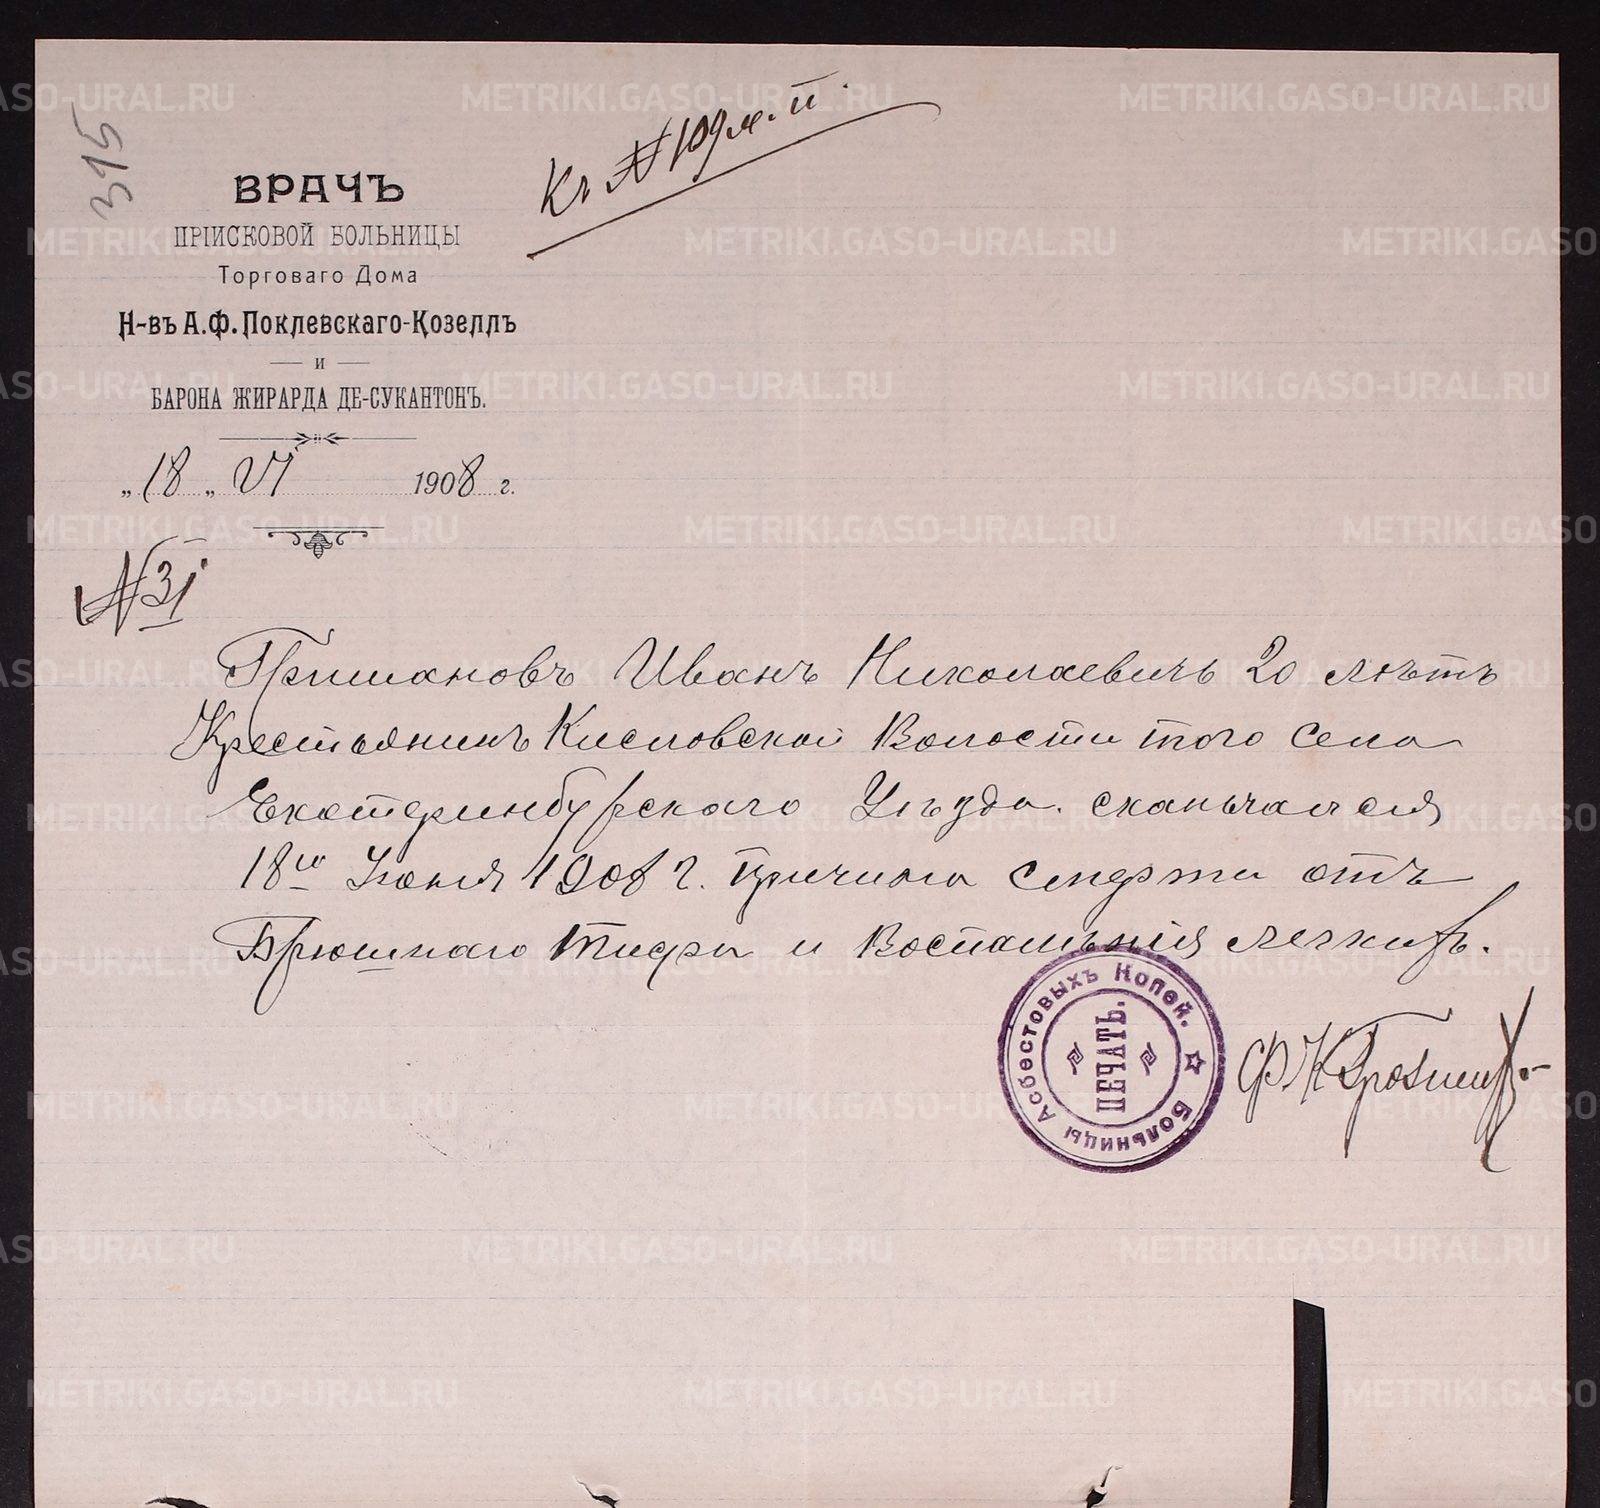 315
Къ № 109 м. п.
ВРАЧЪ
ПРІИСКОВОЙ БОЛЬНИЦЫ
Торговаго Дома
Н-въ А.Ф. Поклевскаго-Козеллъ
и
БАРОНА ЖИРАРДА ДЕ-СУКАНТОНЪ.
„18„ VI 1908 г.
№ 31
Гришановъ Иванъ Николаевичь 20 лѣтъ
Крестьянинъ Кисловской Волости того села
Екатеринбурского Уѣзда. сканьчался
18го Июня 1908 г. причина смерти отъ
Брюшнаго тифа и Воспаленія легкихъ.
Больницы Асбестовыхъ Копей.
ПЕЧАТЬ.
METRIKI.GASO-URAL.RU